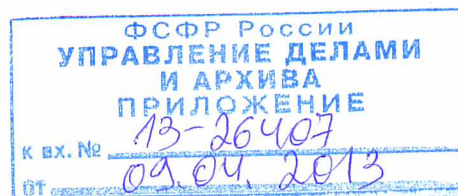 ФСФР России
УПРАВЛЕНИЕ ДЕЛАМИ
И АРХИВА
ПРИЛОЖЕНИЕ
К ВХ. № 13-26407
ОТ 09.04.2013